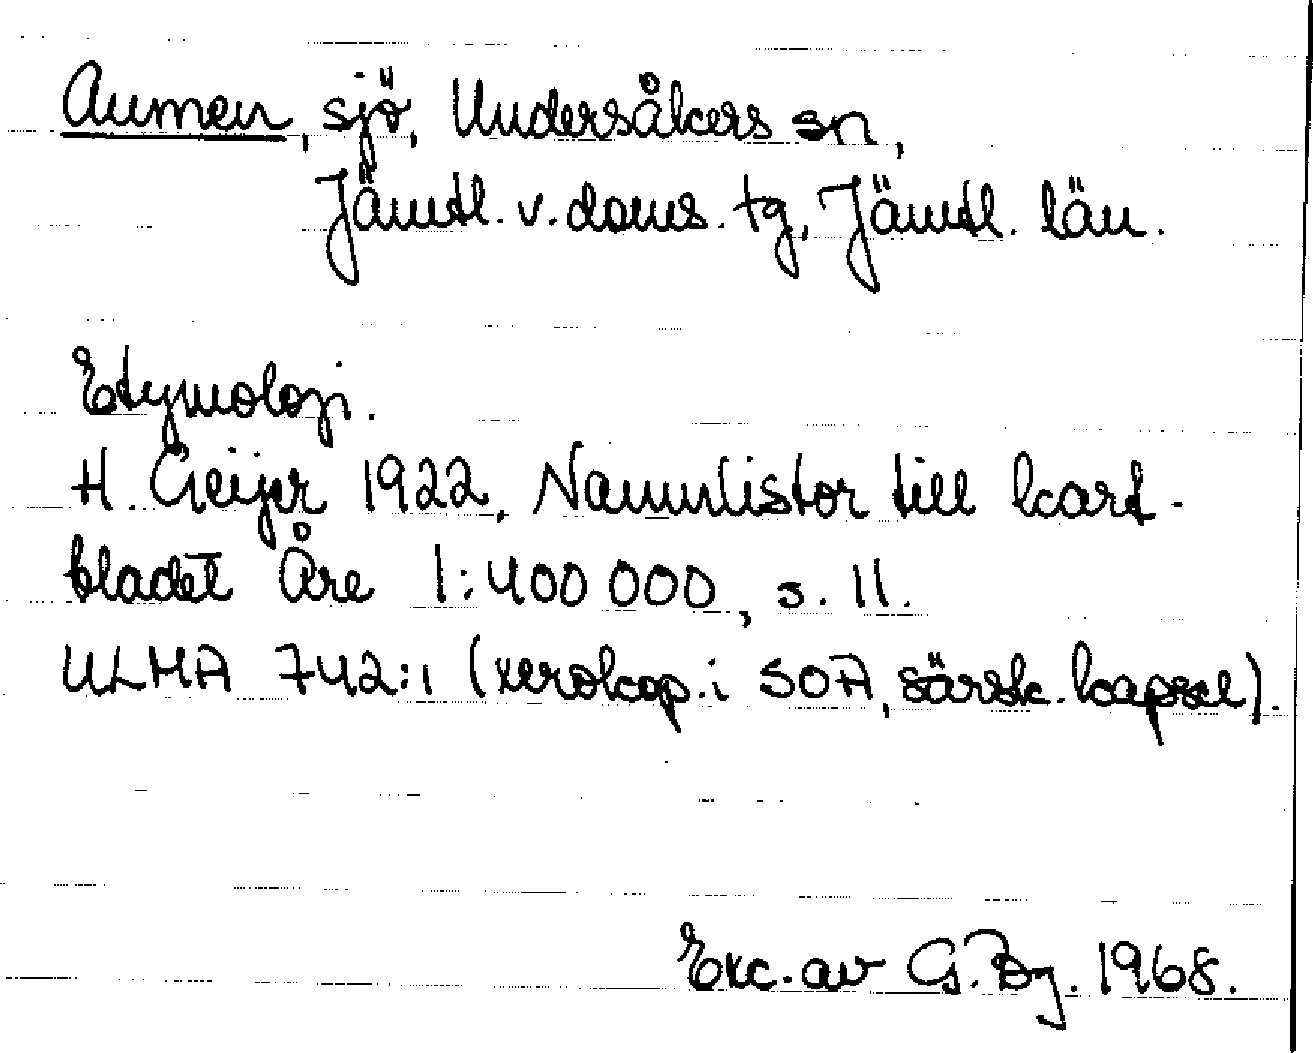 Aumen, sjö, Undersåkers sn,
Jämtl. v. doms. tg, Jämtl. län.
Etymologi.
H. Geijer 1922, Namnlistor till kart-
bladet Åre 1:400 000, s. 11.
ULMA 742:1 (xerokop. i SOA, särsk. kapsel).
Exc. av G. By. 1968.